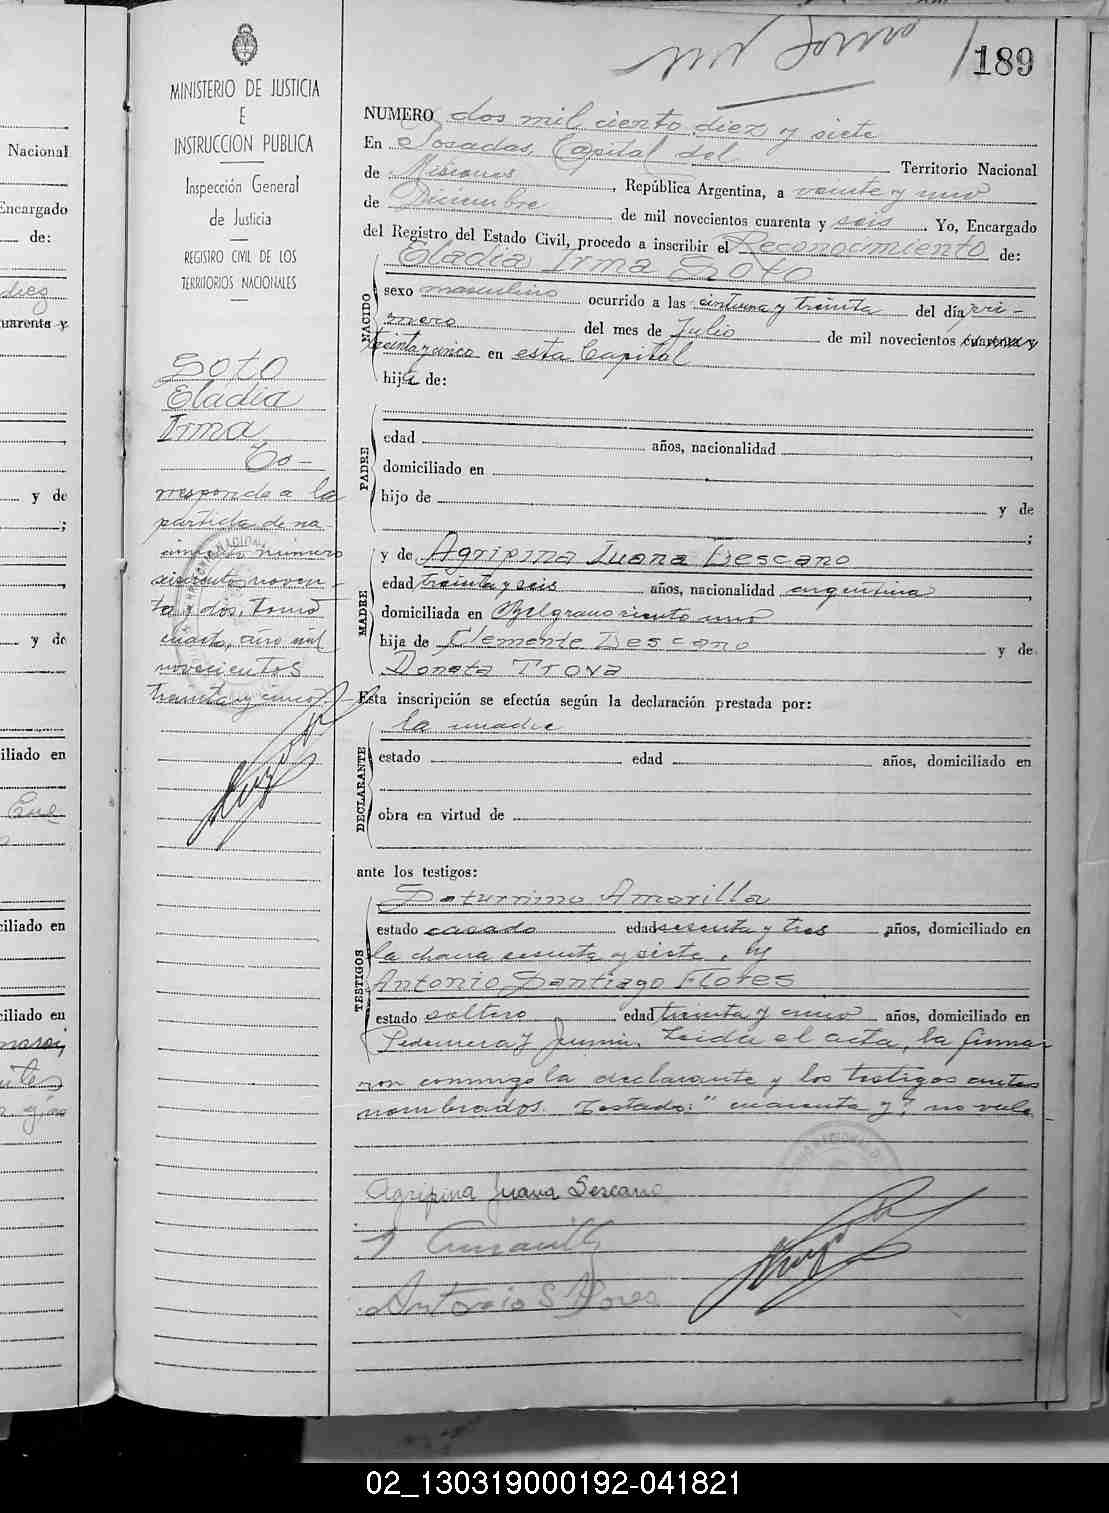 189
MINISTERIO DE JUSTICIA
E
INSTRUCCION PUBLICA
Inspección General
de Justicia
REGISTRO CIVIL DE LOS
TERRITORIOS NACIONALES
Soto
Eladia
Irma
Co-
rresponde a la
partida de na
cimiento número
seiscientos noven-
ta y dos, tomo
cuarto, año mil
novecientos
treinta y cinco.
NUMERO dos mil ciento diez y siete
En Posadas, Capital del Territorio Nacional
de Misiones, República Argentina, a veinte y uno
de Diciembre de mil novecientos cuarenta y seis. Yo, Encargado
del Registro del Estado Civil, procedo a inscribir el Reconocimiento de:
Eladia Irma Soto
NACIDO
sexo masculino ocurrido a las cinturna y treinta del día pri-
mero del mes de Julio de mil novecientos cuarenta y
treinta y cinco en esta Capital
hija de:
PADRE
edad años, nacionalidad
domiciliado en
hijo de y de
;
MADRE
y de Agripina Juana Lescano
edad treinta y seis años, nacionalidad argentina
domiciliada en Belgrano ciento uno
hija de Clemente Lescano y de
Donata Troxa
Esta inscripción se efectúa según la declaración prestada por:
la madre
DECLARANTE
estado edad años, domiciliado en
obra en virtud de
ante los testigos:
TESTIGOS
Saturnino Amarilla
estado casado edad sesenta y tres años, domiciliado en
la chacra sesenta y siete, y
Antonio Santiago Flores
estado soltero edad treinta y uno años, domiciliado en
Pedernera y Junín. Leida el acta, la firma-
ron conmigo la declarante y los testigos antes
nombrados. Testado: "cuarenta y": no vale
Agripina Juana Lescano
S Amarilla
Antonio S Flores
Nacional
Encargado
de:
diez
cuarenta y
y de
;
y de
iliado en
Ene
ciliado en
ciliado en
02_130319000192-041821